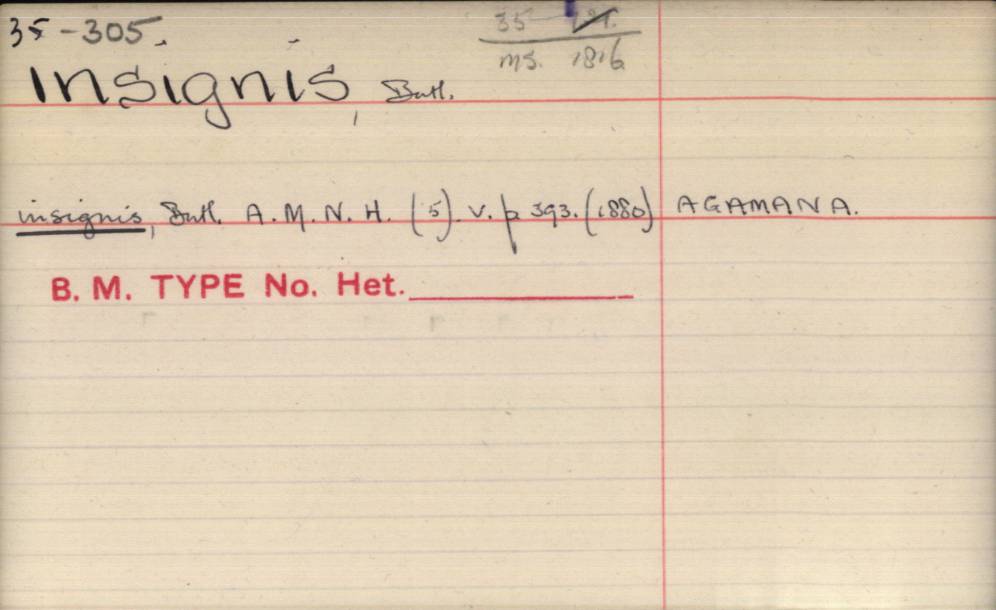 35-305.
35
ms. 1816
Insignis, Butl.
insignis, Butl. A.M.N.H. (5). v. p 393. (1880) AGAMANA.
B. M. TYPE No. Het.